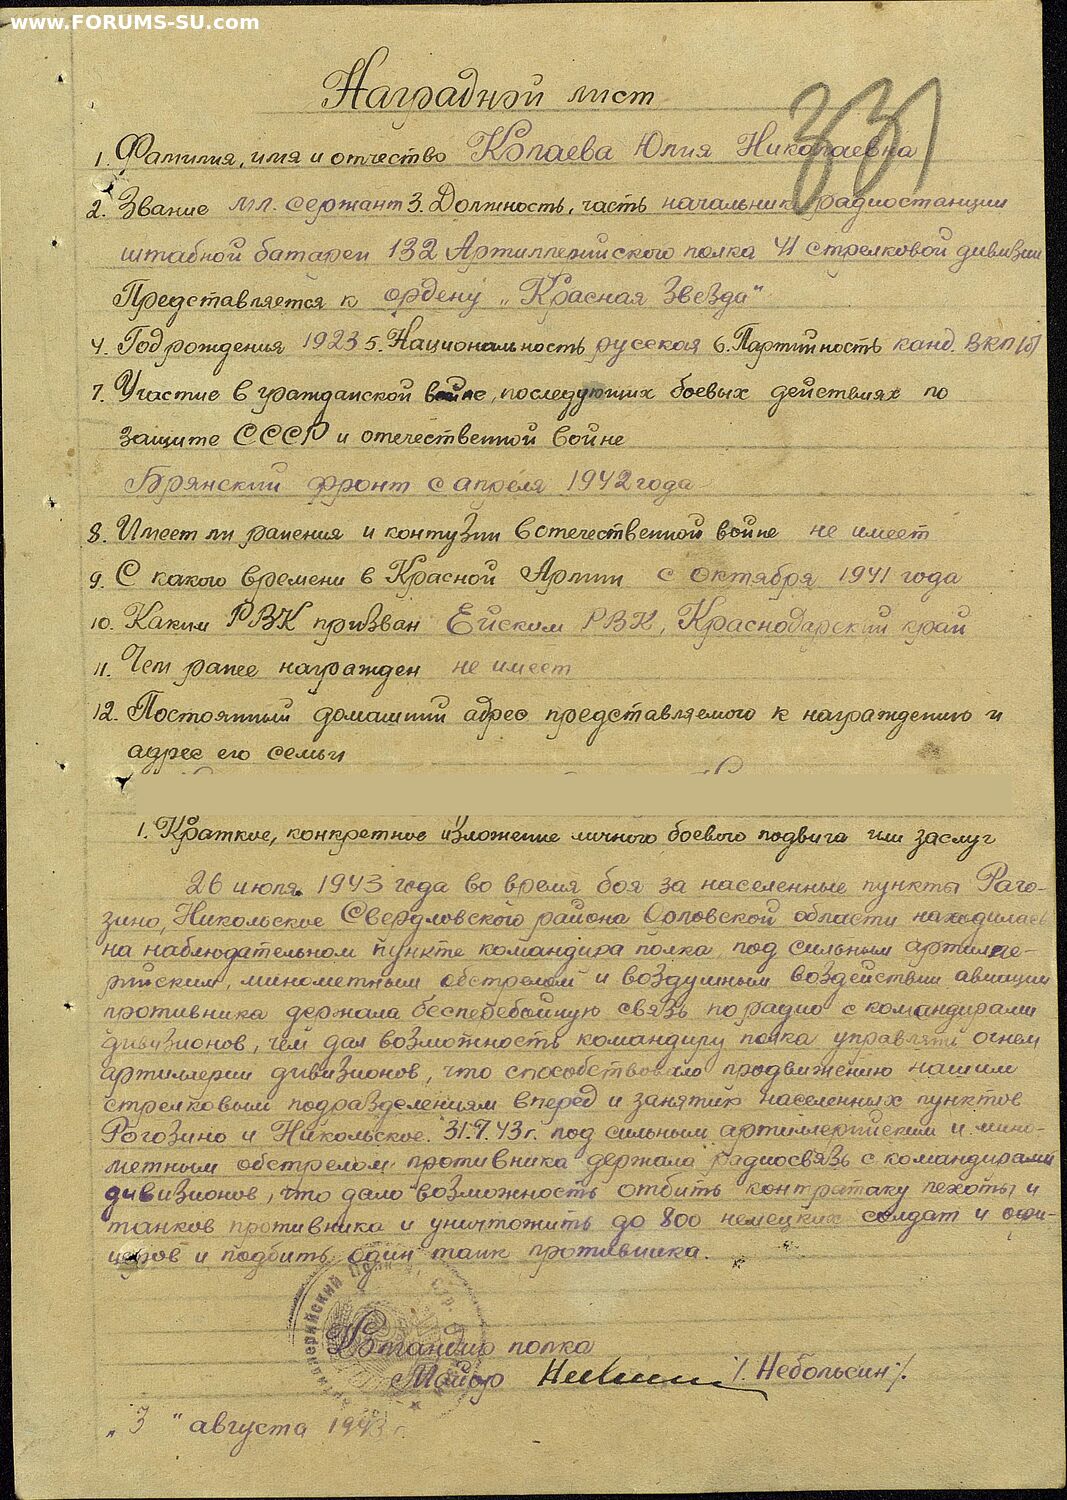 www.FORUMS-SU.com
331
Наградной лист
1. Фамилия, имя и отчество Копаева Юлия Николаевна
2. Звание мл. сержант 3. Должность, часть начальник радиостанции
штабной батареи 132 Артиллерийского полка 41 стрелковой дивизии
Представляется к ордену „Красная Звезда"
4. Год рождения 1923 5. Национальность русская 6. Партийность канд. ВКП(б)
7. Участие в гражданской войне, последующих боевых действиях по
защите СССР и отечественной войне
Брянский фронт с апреля 1942 года
8. Имеет ли ранения и контузии в отечественной войне не имеет
9. С какого времени в Красной Армии с октября 1941 года
10. Каким РВК призван Ейским РВК, Краснодарский край
11. Чем ранее награжден не имеет
12. Постоянный домашний адрес представляемого к награждению и
адрес его семьи
1. Краткое, конкретное изложение личного боевого подвига или заслуг
26 июля 1943 года во время боя за населенные пункты Раго-
зино, Никольское Свердловского района Орловской области находилась
на наблюдательном пункте командира полка, под сильным артилле-
рийским, минометным обстрелом и воздушным воздействии авиации
противника держала бесперебойную связь по радио с командирами
дивизионов, чем дал возможность командиру полка управлять огнем
артиллерии дивизионов, что способствовало продвижению нашим
стрелковым подразделениям вперед и занятию населенных пунктов
Рогозино и Никольское. 31.7.43 г. под сильным артиллерийским и мино-
метным обстрелом противника держала радиосвязь с командирами
дивизионов, что дало возможность отбить контратаку пехоты и
танков противника и уничтожить до 800 немецких солдат и офи-
церов и подбить один танк противника.
Командир полка
Майор /Небольсин/.
„3" августа 1943 г.